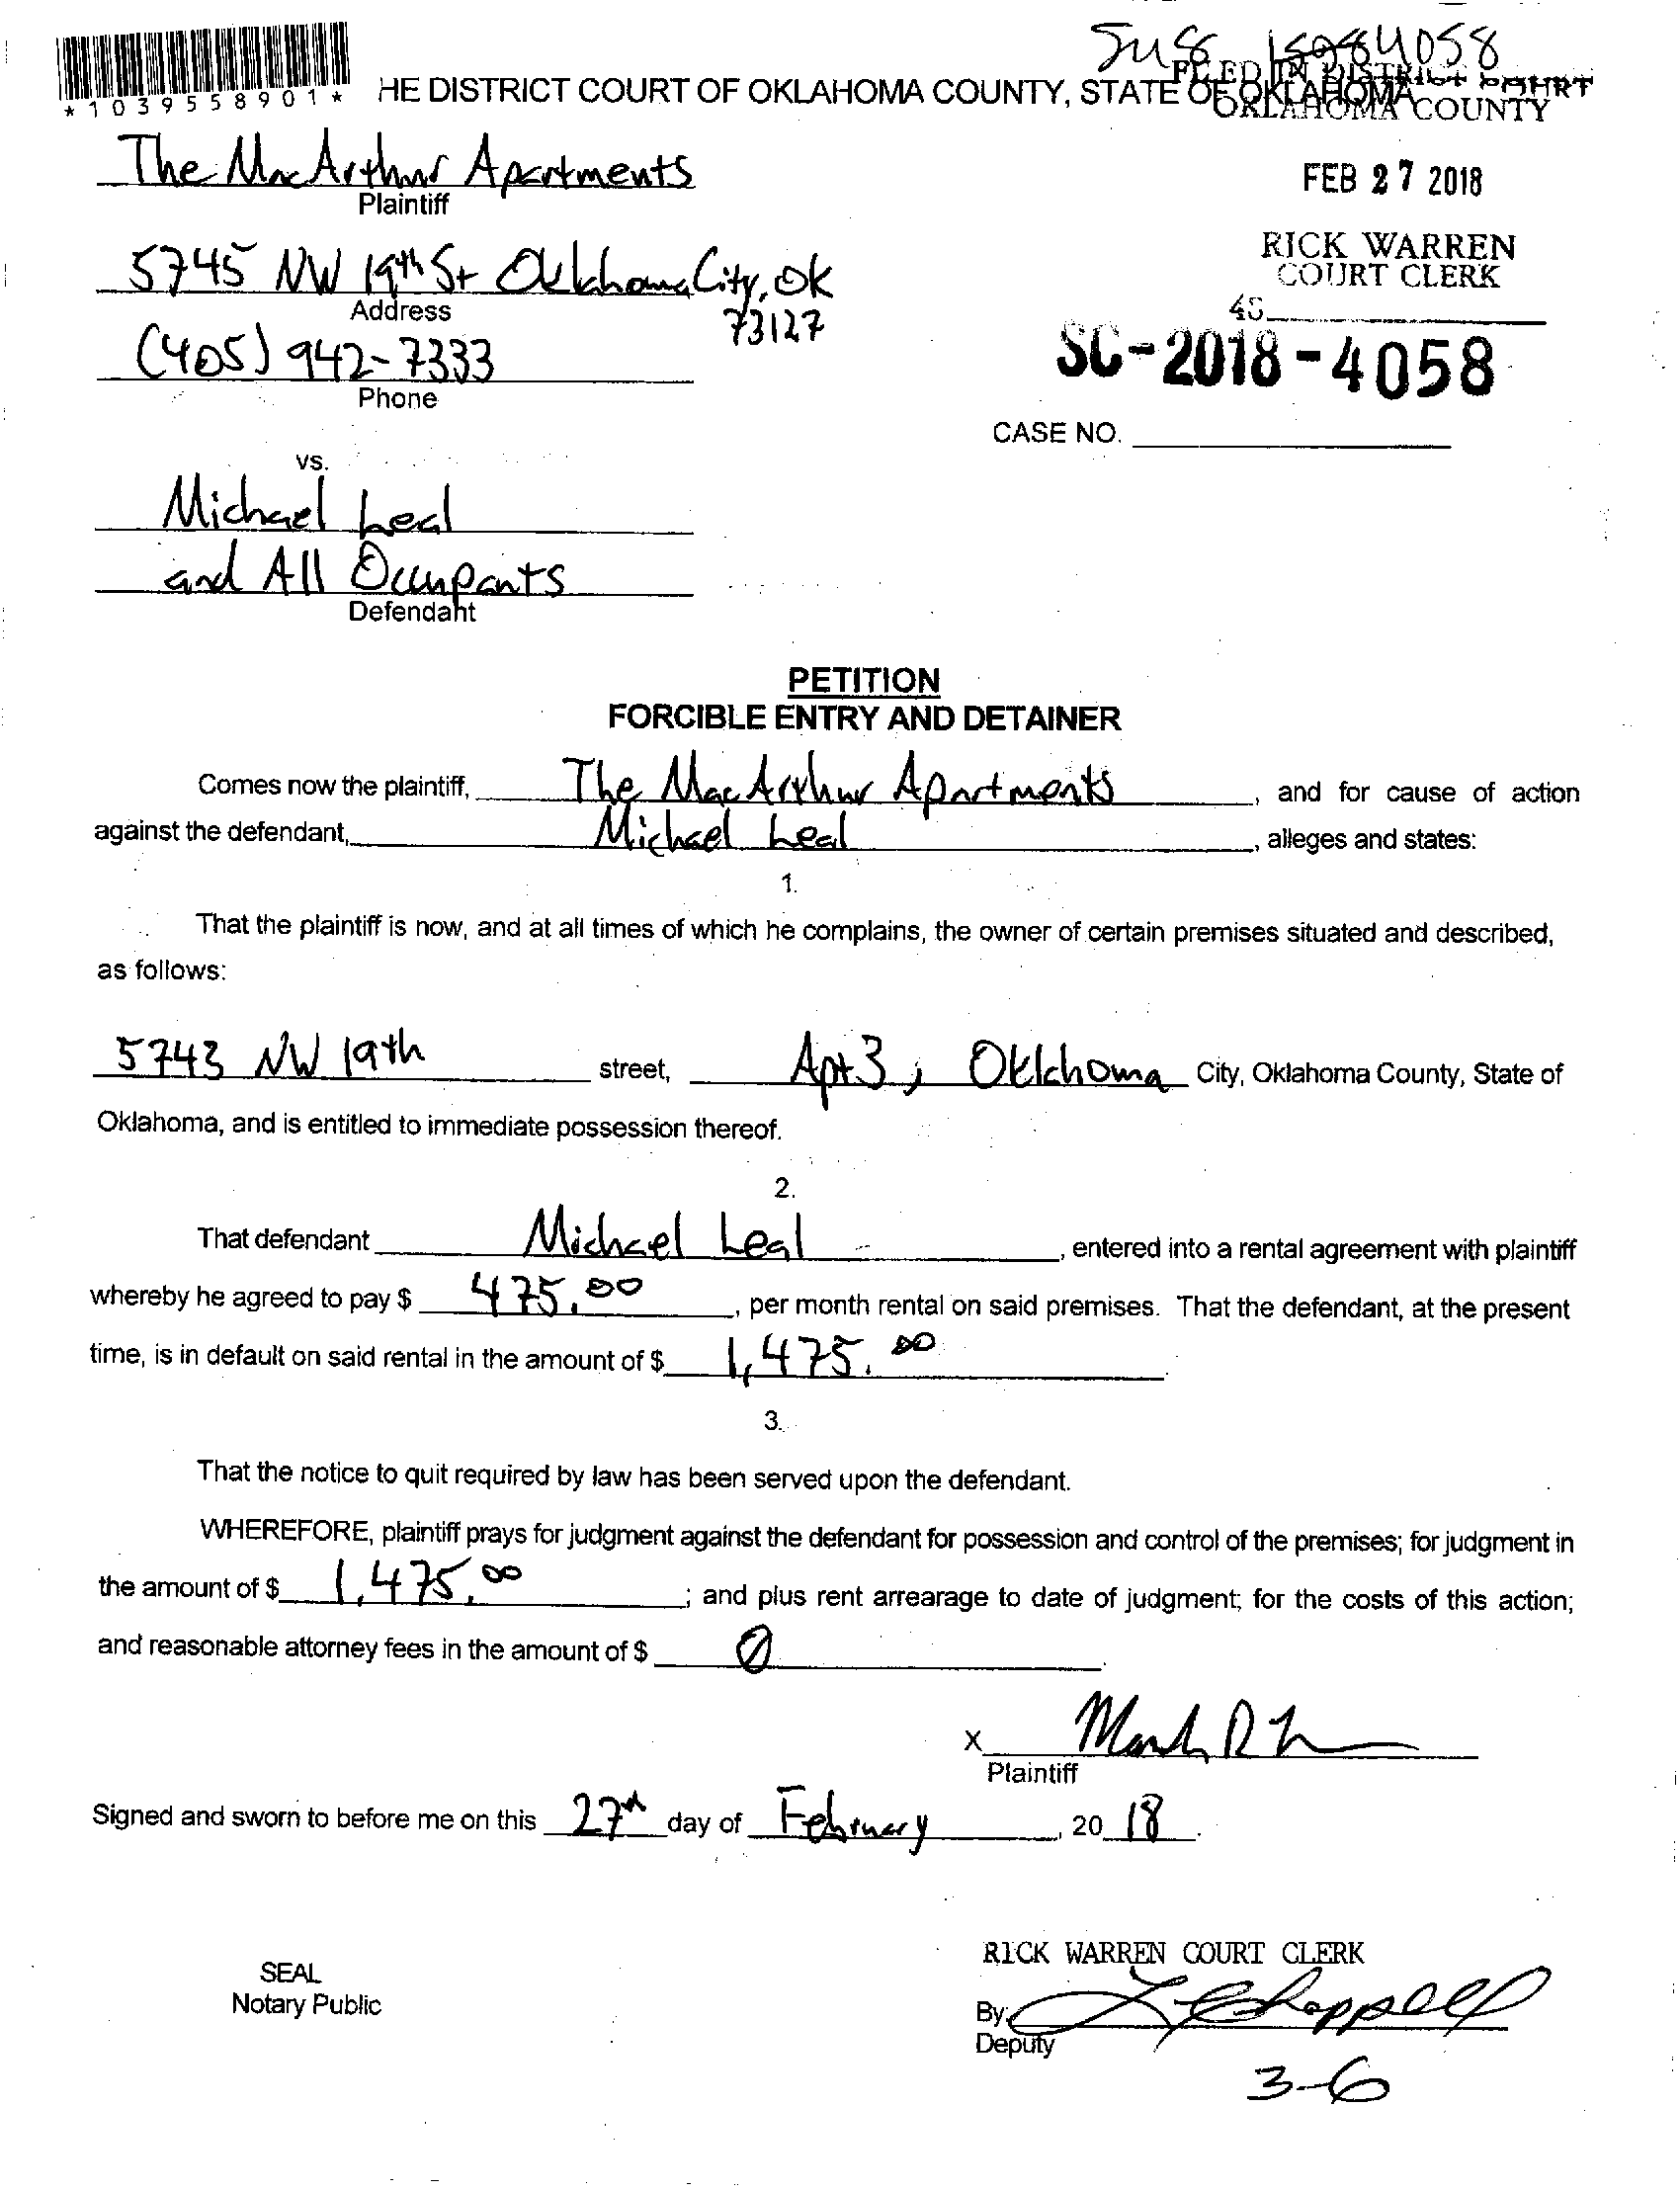 *1039558901*
HE DISTRICT COURT OF OKLAHOMA COUNTY, STATE OF OKLAHOMA
FILED IN DISTRICT COURT
OKLAHOMA COUNTY
The MacArthur Apartments
Plaintiff
FEB 27 2018
RICK WARREN
COURT CLERK
5745 NW 19th St Oklahoma City, OK
73127
Address
(405) 942-7333
Phone
SC-2018-4058
CASE NO.
vs.
Michael Leal
and All Occupants
Defendant
PETITION
FORCIBLE ENTRY AND DETAINER
Comes now the plaintiff, The MacArthur Apartments, and for cause of action
against the defendant, Michael Leal, alleges and states:
1.
That the plaintiff is now, and at all times of which he complains, the owner of certain premises situated and described,
as follows:
5743 NW 19th street, Apt 3, Oklahoma City, Oklahoma County, State of
Oklahoma, and is entitled to immediate possession thereof.
2.
That defendant Michael Leal, entered into a rental agreement with plaintiff
whereby he agreed to pay $ 475.00, per month rental on said premises. That the defendant, at the present
time, is in default on said rental in the amount of $ 1,475.00
3.
That the notice to quit required by law has been served upon the defendant.
WHEREFORE, plaintiff prays for judgment against the defendant for possession and control of the premises; for judgment in
the amount of $ 1,475.00; and plus rent arrearage to date of judgment; for the costs of this action;
and reasonable attorney fees in the amount of $ 0.
X
Plaintiff
Signed and sworn to before me on this 27th day of February, 2018.
SEAL
Notary Public
RICK WARREN COURT CLERK
By
Deputy
3-6